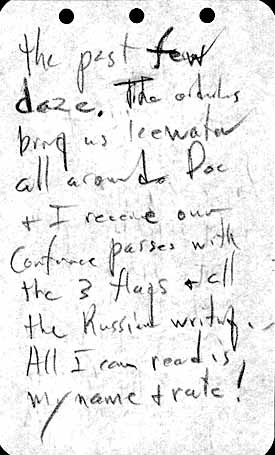 the past few
daze. The orderlies
bring us icewater
all around. Doc
+ I receive our
Conference passes with
the 3 flags + all
the Russian writing...
All I can read is
my name + rate!